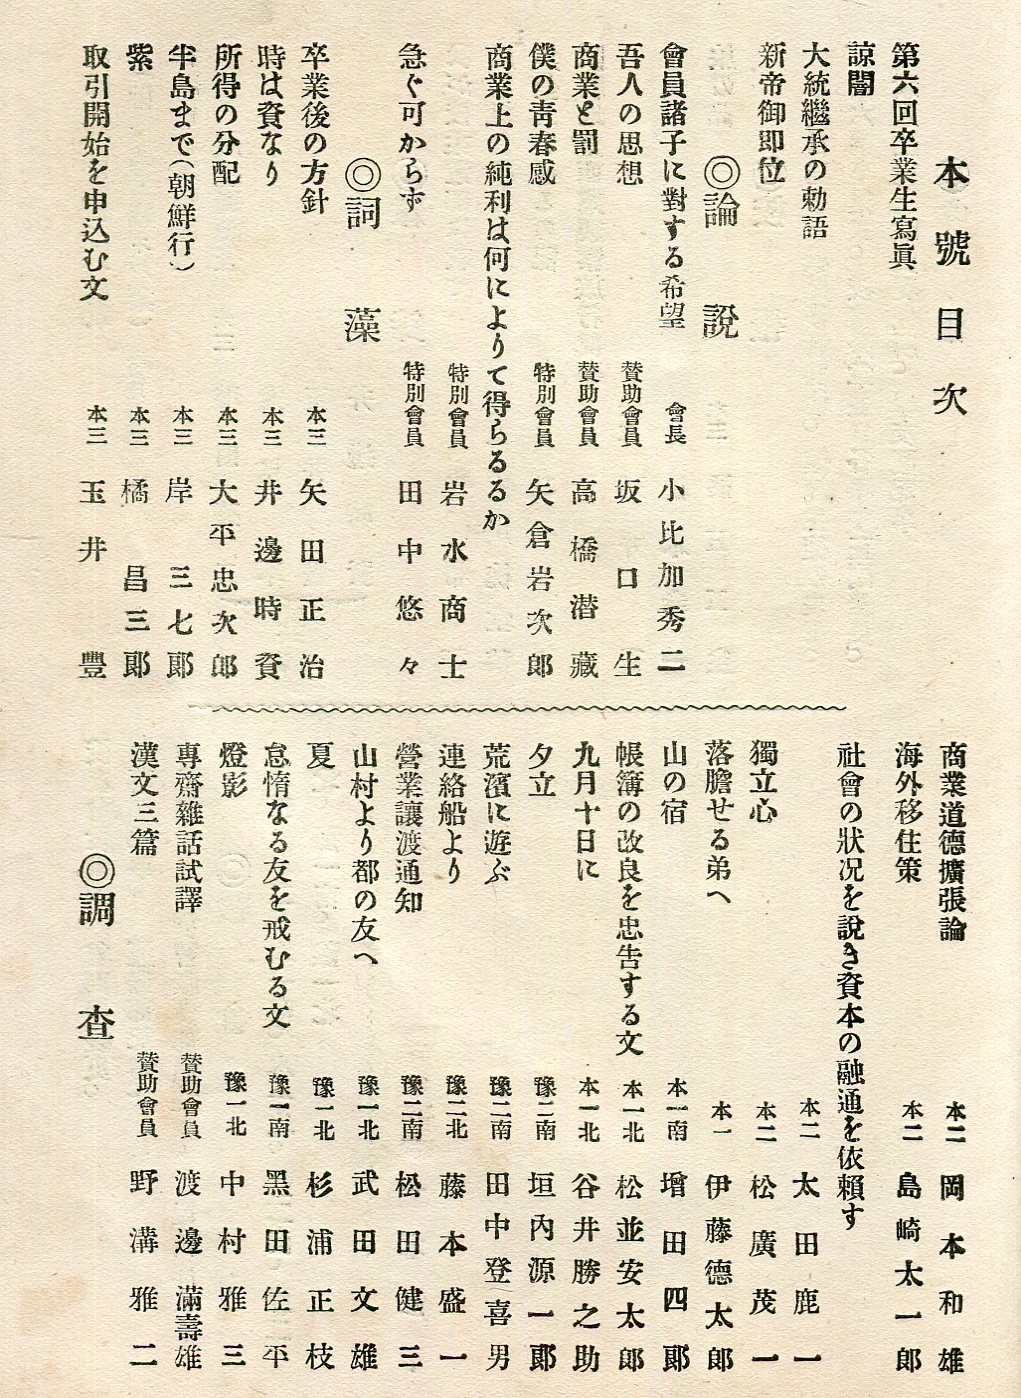 本號目次
第六回卒業生寫眞
諒闇
大統繼承の勅語
新帝御卽位
◎論說
會員諸子に對する希望 會長 小比加秀二
吾人の思想 賛助會員 坂口生
商業と罰 賛助會員 高橋潜藏
僕の靑春感 特別會員 矢倉岩次郎
商業上の純利は何によりて得らるるか
特別會員 岩水商士
急ぐ可からず 特別會員 田中悠々
◎詞藻
卒業後の方針 本三 矢田正治
時は資なり 本三 井邊時資
所得の分配 本三 大平忠次郎
半島まで(朝鮮行) 本三 岸三七郎
紫 本三 橘昌三郎
取引開始を申込む文 本三 玉井豐
商業道德擴張論 本二 岡本和雄
海外移住策 本二 島崎太一郎
社會の狀況を說き資本の融通を依賴す
本二 太田鹿一
獨立心 本二 松廣茂一
落膽せる弟へ 本一 伊藤德太郎
山の宿 本一南 增田四郎
帳簿の改良を忠告する文 本一北 松並安太郎
九月十日に 本一北 谷井勝之助
夕立 豫二南 垣內源一郎
荒濱に遊ぶ 豫二南 田中登喜男
連絡船より 豫二北 藤本盛一
營業讓渡通知 豫二南 松田健三
山村より都の友へ 豫一北 武田文雄
夏 豫一北 杉浦正枝
怠惰なる友を戒むる文 豫一南 黑田佐平
燈影 豫一北 中村雅三
專齋雜話試譯 賛助會員 渡邊滿壽雄
漢文三篇 賛助會員 野溝雅二
◎調查